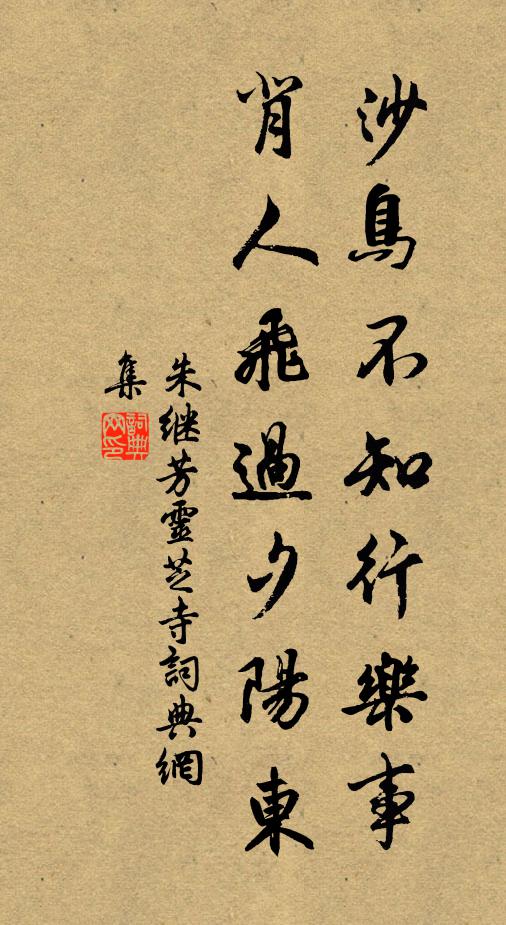 沙鳥不知行樂事
背人飛過夕陽東
朱继芳靈芝寺詞典網
集
詞典
网印